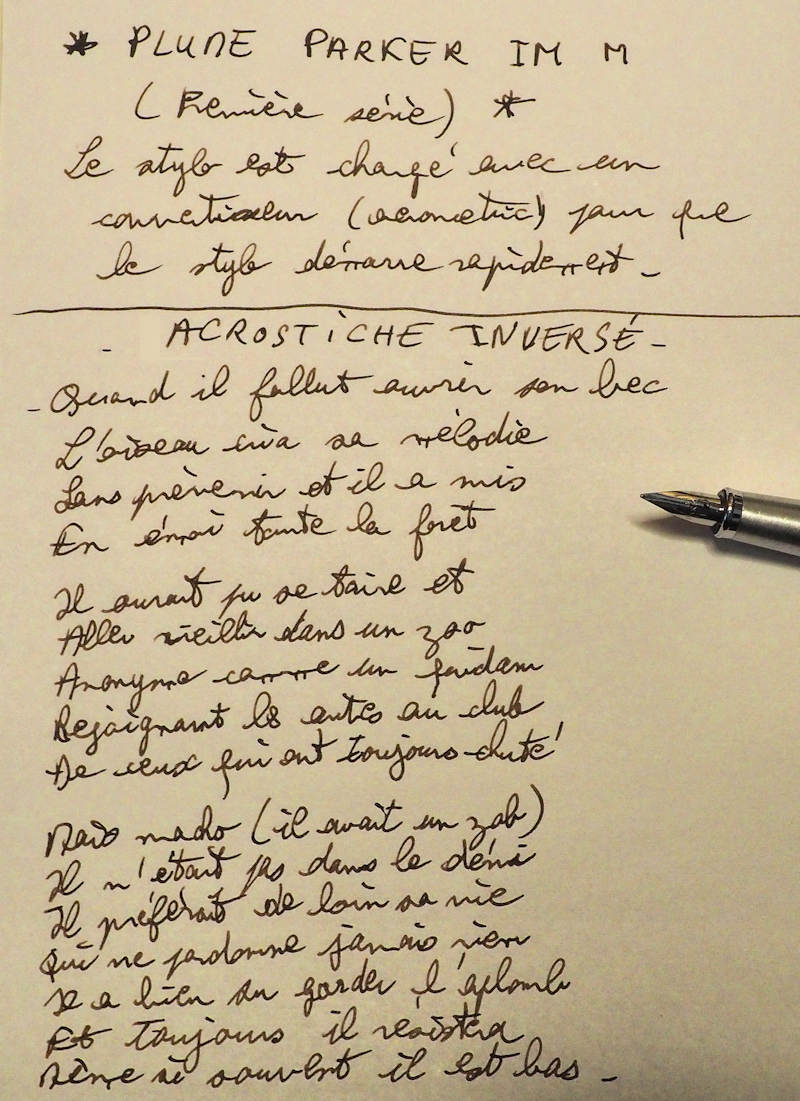 * PLUME PARKER IM M
(Première série) *
Le stylo est chargé avec un
convertisseur (aerometric) pour que
le stylo démarre rapidement -
- ACROSTICHE INVERSÉ -
- Quand il fallut ouvrir son bec
L'oiseau cria sa mélodie
Sans prévenir et il a mis
En émoi toute la forêt
Il aurait pu se taire et
Aller vieillir dans un zoo
Anonyme comme un quidam
Rejoignant les autres au club
De ceux qui ont toujours chuté
Mais macho (il avait un zob)
Il n'était pas dans le déni
Il préférait de loin sa vie
Qui ne pardonne jamais rien
Il a bien su garder l'aplomb
Et toujours il résistera
Même si souvent il est bas -